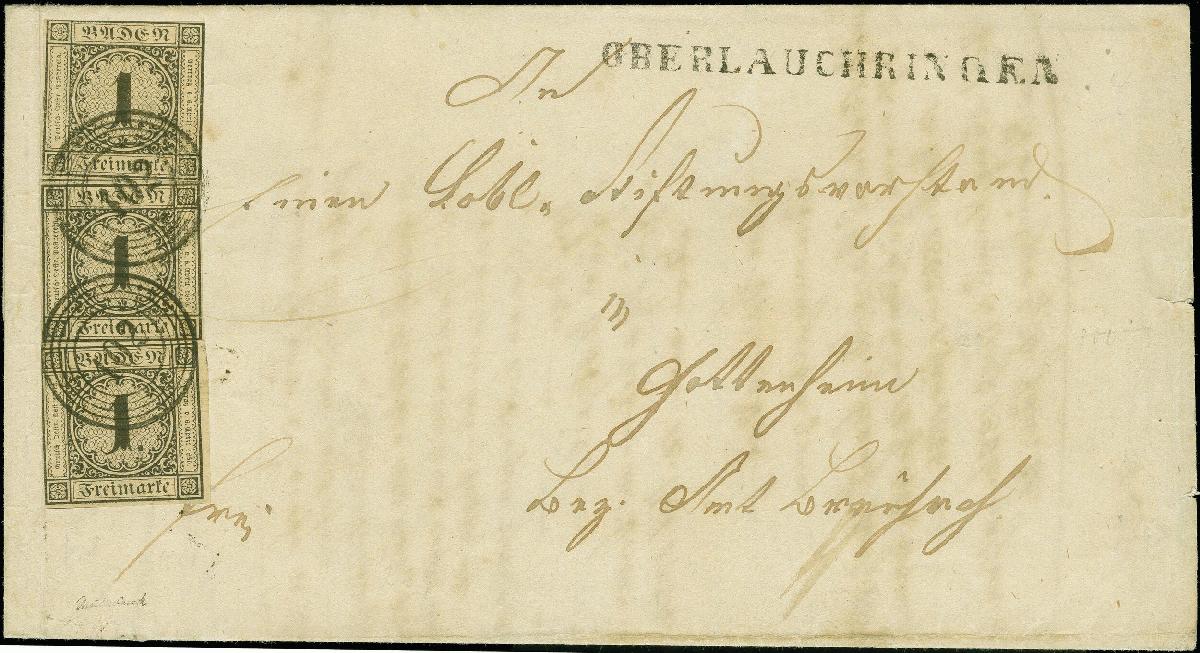 BADEN
1
Freimarke
BADEN
1
Freimarke
BADEN
1
Freimarke
OBERLAUCHRINGEN
An
Einen Löbl. Stiftungsvorstand
in
Gottenheim
Bez. Amt Breysach
frei